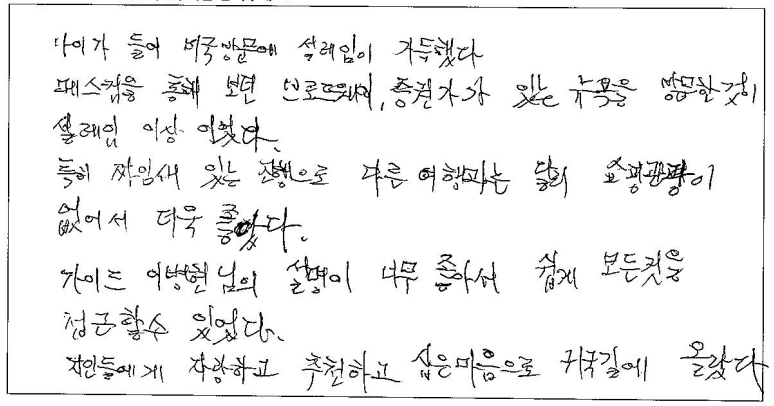 나이가 들어 미국방문에 설레임이 가득했다
매스컴을 통해 보던 브로드웨이, 증권가가 있는 뉴욕을 방문한것이
설레임 이상 이었다.
특히 짜임새 있는 진행으로 다른 여행과는 달리 쇼핑관광이
없어서 더욱 좋았다.
가이드 이병헌님의 설명이 너무 좋아서 쉽게 모든것을
접근할수 있었다.
지인들에게 자랑하고 추천하고 싶은마음으로 귀국길에 올랐다